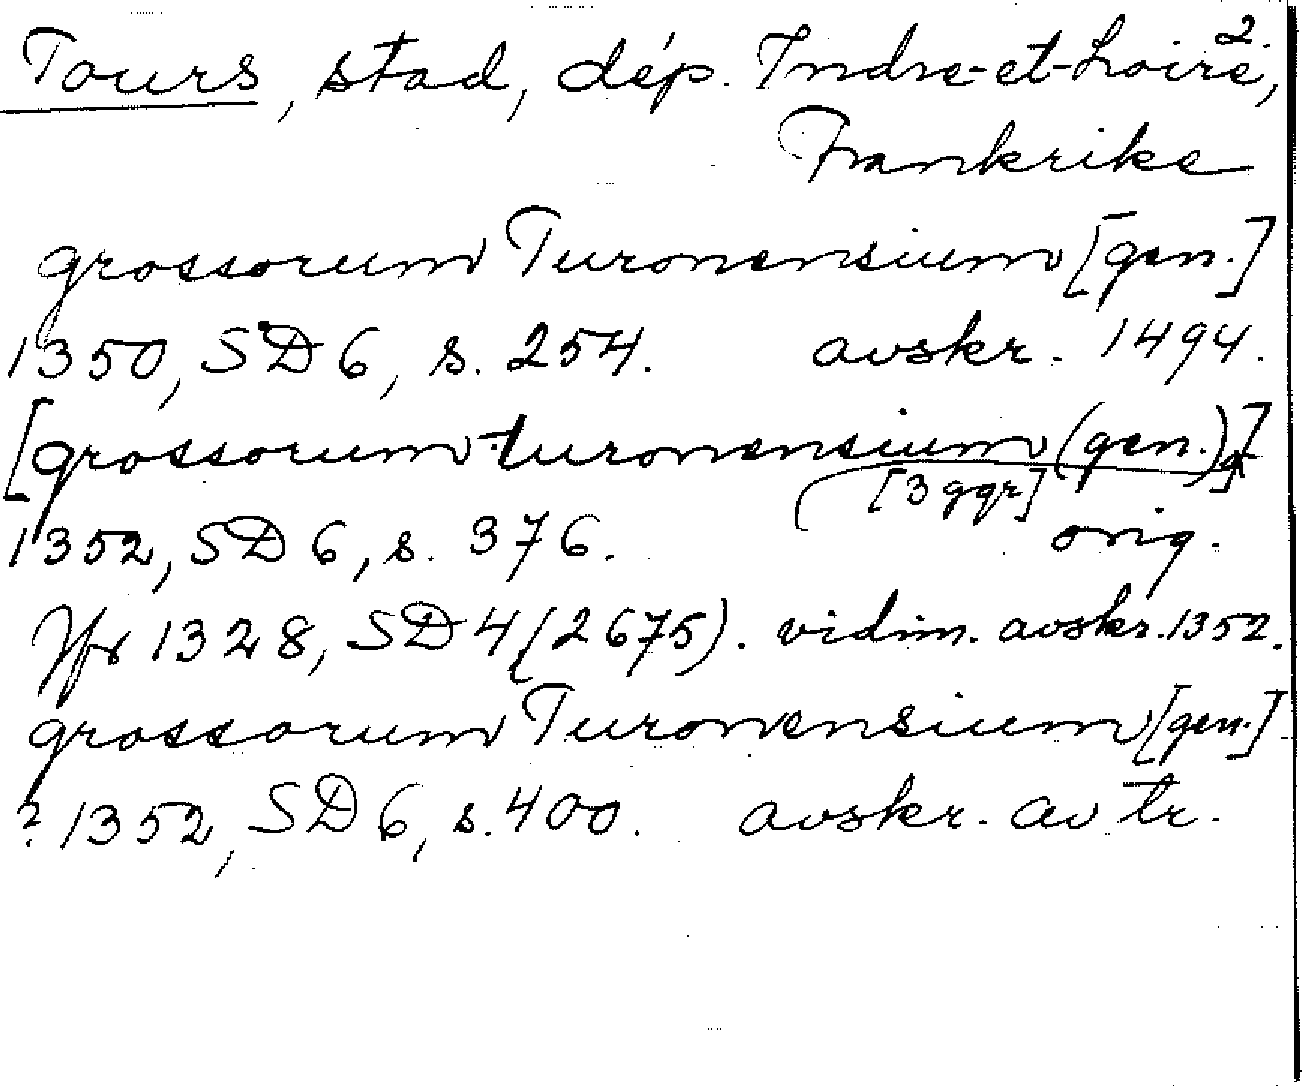 2.
Tours, stad, dép. Indre-et-Loire,
Frankrike
grossorum Turonensium [gen.]
1350, SD 6, s. 254. avskr. 1494.
[grossorum turonensium (gen.)]
[3 ggr]
1352, SD 6, s. 376. orig.
Jfr 1328, SD 4 (2675). vidim. avskr. 1352.
grossorum Turonensium [gen.]
? 1352, SD 6, s. 400. avskr. av tr.